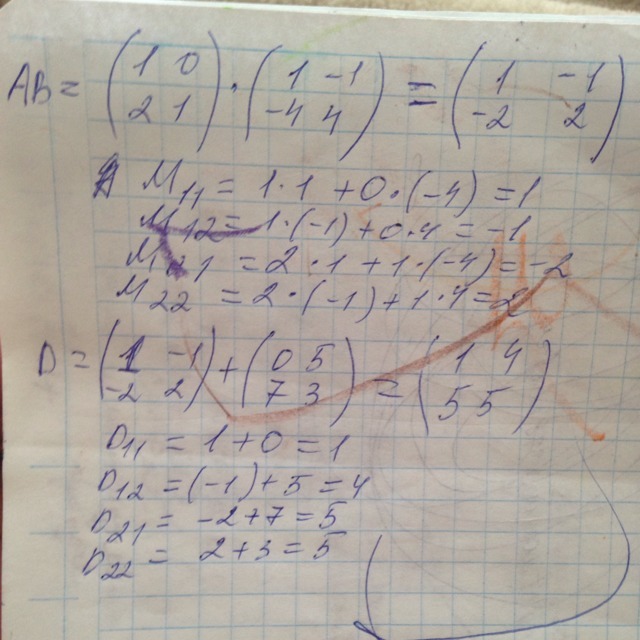 AB = (1 0 2 1) · (1 -1 -4 4) = (1 -1 -2 2)
M11 = 1·1 + 0·(-4) = 1
M12 = 1·(-1) + 0·4 = -1
M21 = 2·1 + 1·(-4) = -2
M22 = 2·(-1) + 1·4 = 2
D = (1 -1 -2 2) + (0 5 7 3) = (1 4 5 5)
D11 = 1 + 0 = 1
D12 = (-1) + 5 = 4
D21 = -2 + 7 = 5
D22 = 2 + 3 = 5